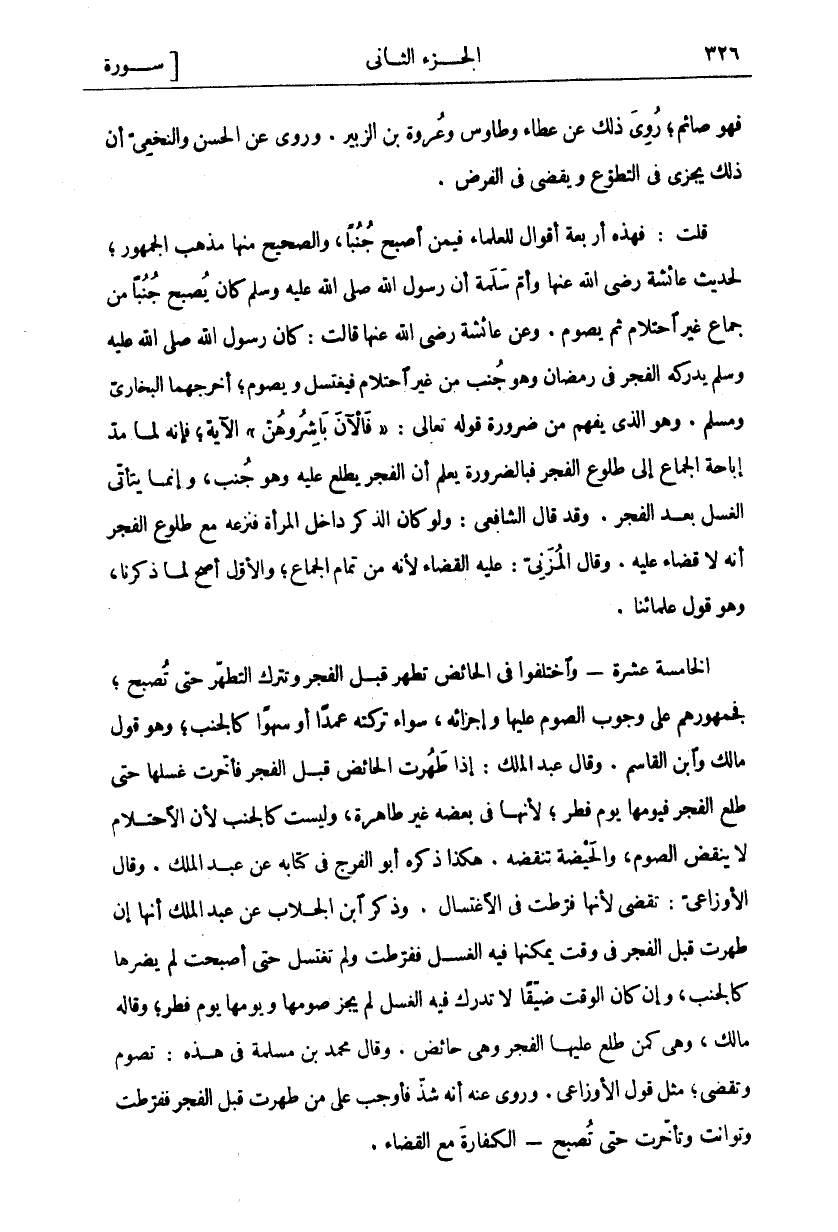 ٣٢٦ الجـزء الثـانى [ ســورة
فهو صائم؛ رُوِىَ ذلك عن عطاء وطاوس وعُروة بن الزبير . وروى عن الحسن والنخعىّ أن
ذلك يجزى فى التطوّع ويقضى فى الفرض .
قلت : فهذه أربعة أقوال للعلماء فيمن أصبح جُنُبًا، والصحيح منها مذهب الجمهور؛
لحديث عائشة رضى الله عنها وأمّ سَلَمة أن رسول الله صلى الله عليه وسلم كان يُصبح جُنُبًا من
جماع غير ٱحتلام ثم يصوم . وعن عائشة رضى الله عنها قالت : كان رسول الله صلى الله عليه
وسلم يدركه الفجر فى رمضان وهو جُنب من غير ٱحتلام فيغتسل ويصوم؛ أخرجهما البخارىّ
ومسلم . وهو الذى يفهم من ضرورة قوله تعالى : « فَالْآنَ بَاشِرُوهُنَّ » الآية؛ فإنه لمـا مدّ
إباحة الجماع إلى طلوع الفجر فبالضرورة يعلم أن الفجر يطلع عليه وهو جُنب، وإنمـا يتأتّى
الغسل بعـد الفجر . وقد قال الشافعى : ولو كان الذكر داخل المرأة فنزعه مع طلوع الفجر
أنه لا قضاء عليه . وقال المُزَنِىّ : عليه القضاء لأنه من تمام الجماع؛ والأوّل أصح لمـا ذكرنا،
وهو قول علمائنا .
الخامسة عشرة — وٱختلفوا فى الحائض تطهر قبـل الفجر وتترك التطهّر حتى تُصبح؛
فجمهورهم على وجوب الصوم عليها وإجزائه، سواء تركته عمدًا أو سهوًا كالجنب؛ وهو قول
مالك وٱبن القاسم . وقال عبد الملك : إذا طَهُرت الحائض قبـل الفجر فأخّرت غسلها حتى
طلع الفجر فيومها يوم فطر؛ لأنهـا فى بعضه غير طاهرة، وليست كالجنب لأن الٱحتـلام
لا ينقض الصوم، والحَيْضة تنقضه . هكذا ذكره أبو الفرج فى كتابه عن عبـد الملك . وقال
الأوزاعىّ : تقضى لأنها فرّطت فى الٱغتسال . وذكر ٱبن الجلاب عن عبد الملك أنها إن
طهرت قبل الفجر فى وقت يمكنها فيه الغسـل ففرّطت ولم تغتسل حتى أصبحت لم يضرها
كالجنب، وإن كان الوقت ضيّقًا لا تدرك فيه الغسل لم يجز صومها ويومها يوم فطر؛ وقاله
مالك، وهى كمن طلع عليهـا الفجر وهى حائض . وقال محمد بن مسلمة فى هـذه : تصوم
وتقضى؛ مثل قول الأوزاعى . وروى عنه أنه شذّ فأوجب على من طهرت قبل الفجر ففرّطت
وتوانت وتأخّرت حتى تُصبح — الكفارةَ مع القضاء .